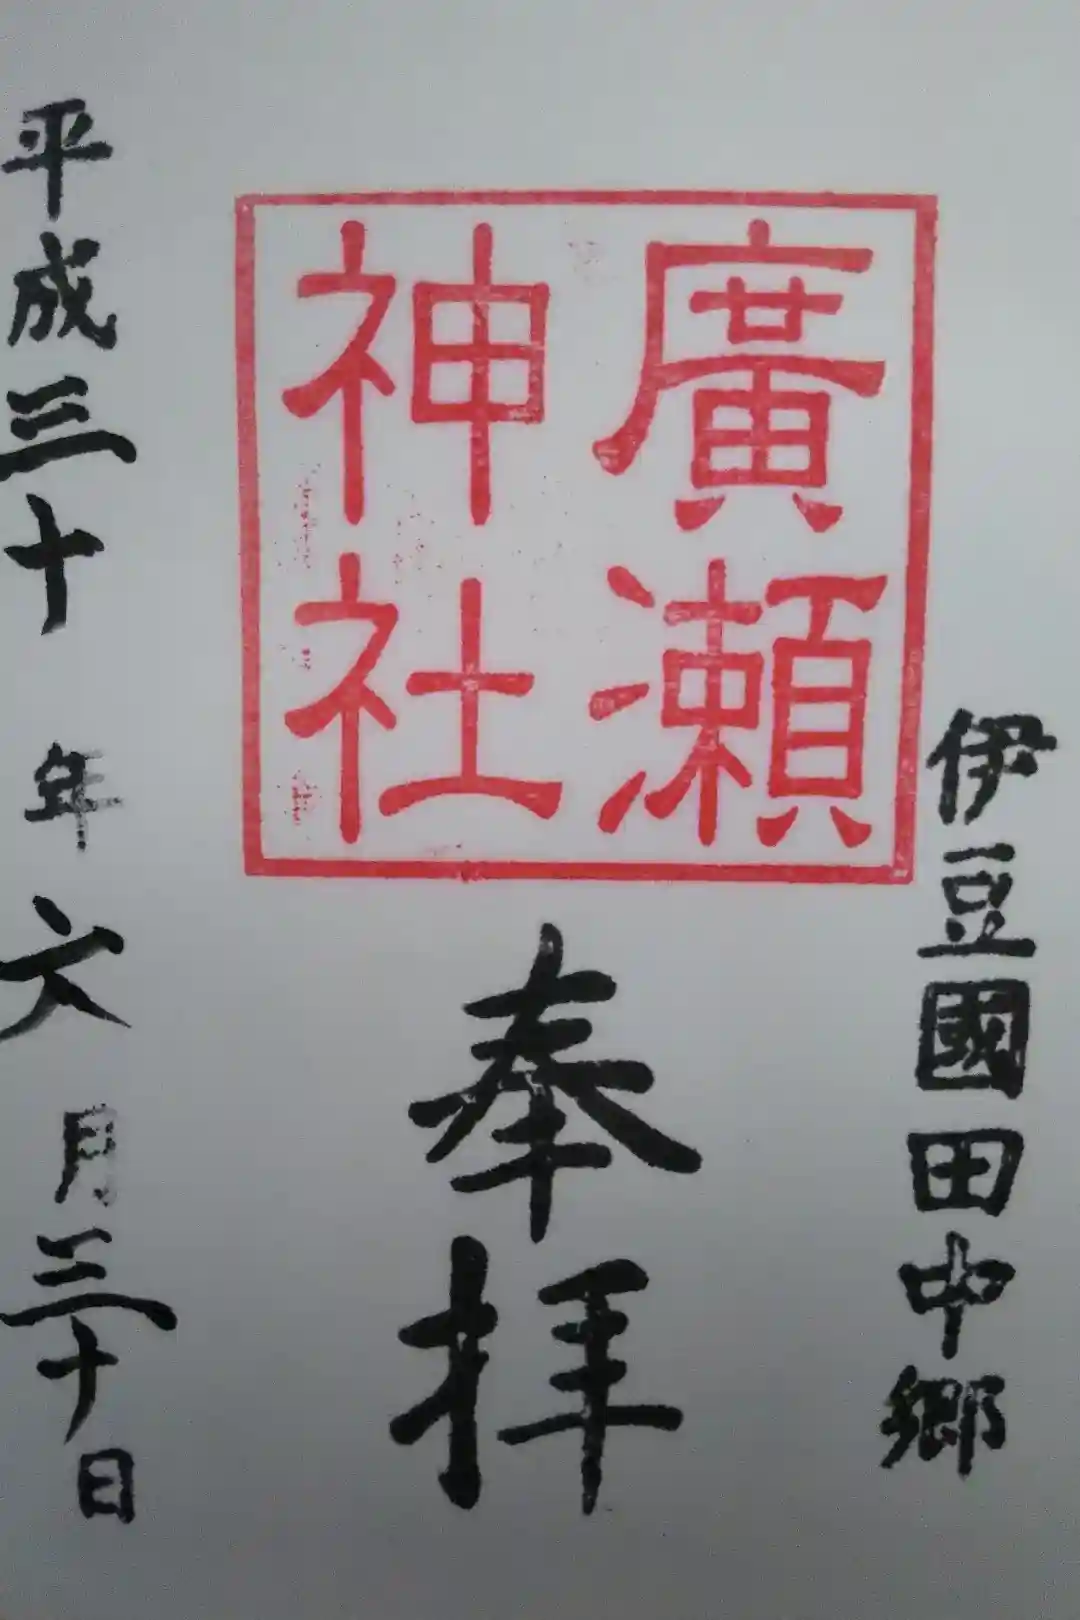 伊豆國田中郷
廣瀬
神社
奉拝
平成三十年六月三十日